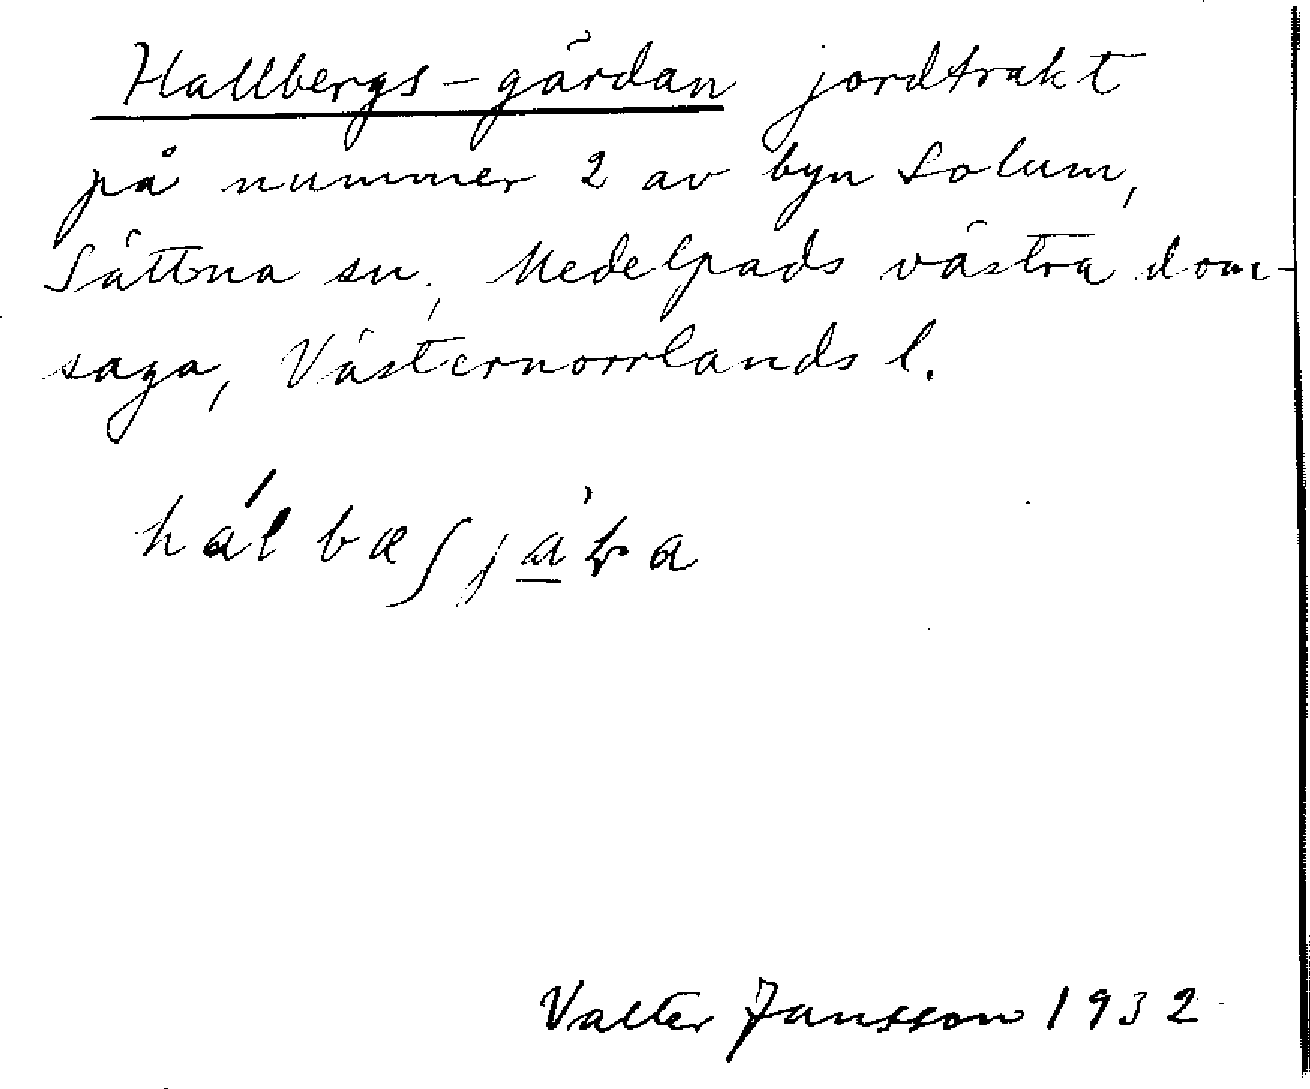 Hallbergs-gärdan jordtrakt
på nummer 2 av byn Solum,
Sättna sn, Medelpads västra dom-
saga, Västernorrlands l.
Valter Jansson 1932